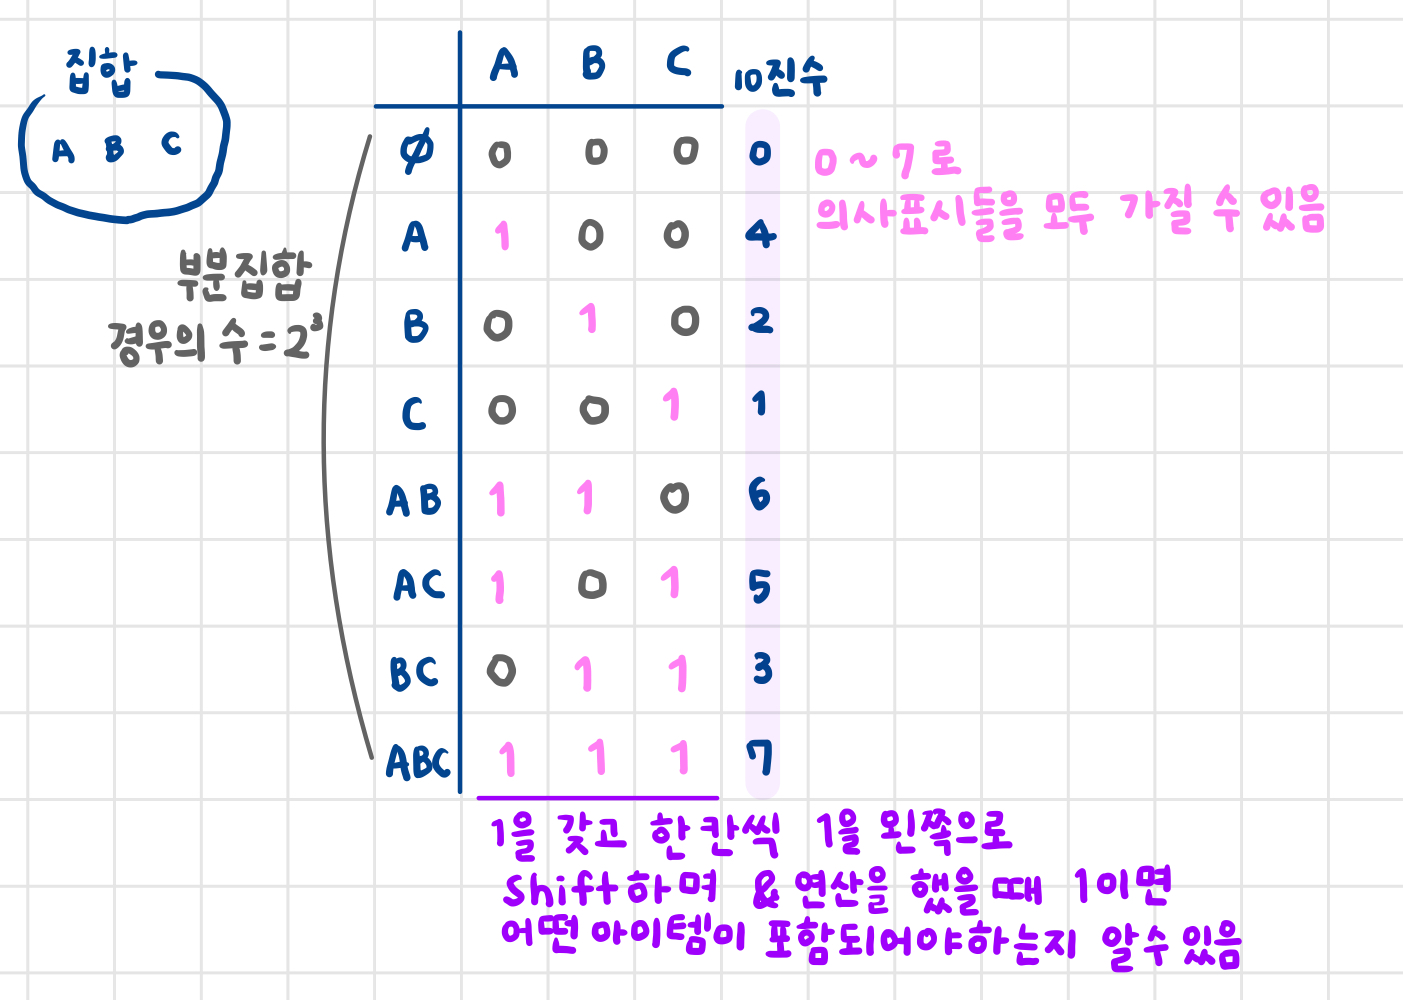 집합
A B C
부분집합
경우의 수 = 2³
A B C 10진수
∅ 0 0 0 0
A 1 0 0 4
B 0 1 0 2
C 0 0 1 1
AB 1 1 0 6
AC 1 0 1 5
BC 0 1 1 3
ABC 1 1 1 7
0 ~ 7 로
의사표시들을 모두 가질 수 있음
1을 갖고 한칸씩 1을 왼쪽으로
shift하며 & 연산을 했을때 1이면
어떤 아이템이 포함되어야하는지 알수 있음